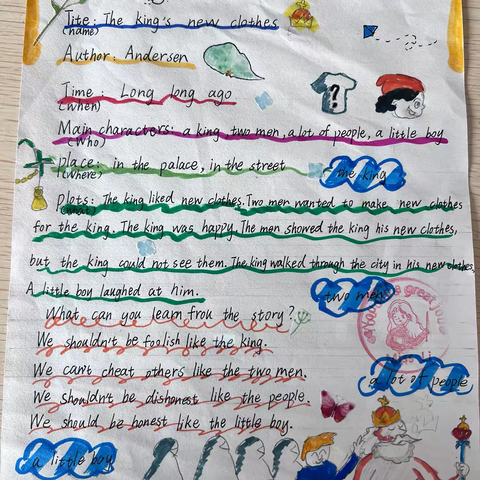 Tite: The king's new clothes
(name)
Author: Andersen
Time: Long long ago
(when)
Main characters: a king, two men, a lot of people, a little boy
(Who)
place: in the palace, in the street
(where)
the king
plots: The king liked new clothes. Two men wanted to make new clothes
for the king. The king was happy. The men showed the king his new clothes,
but the king could not see them. The king walked through the city in his new clothes.
A little boy laughed at him.
two men
What can you learn from the story?
We shouldn't be foolish like the king.
We can't cheat others like the two men.
a lot of people
We shouldn't be dishonest like the people.
We should be honest like the little boy.
a little boy